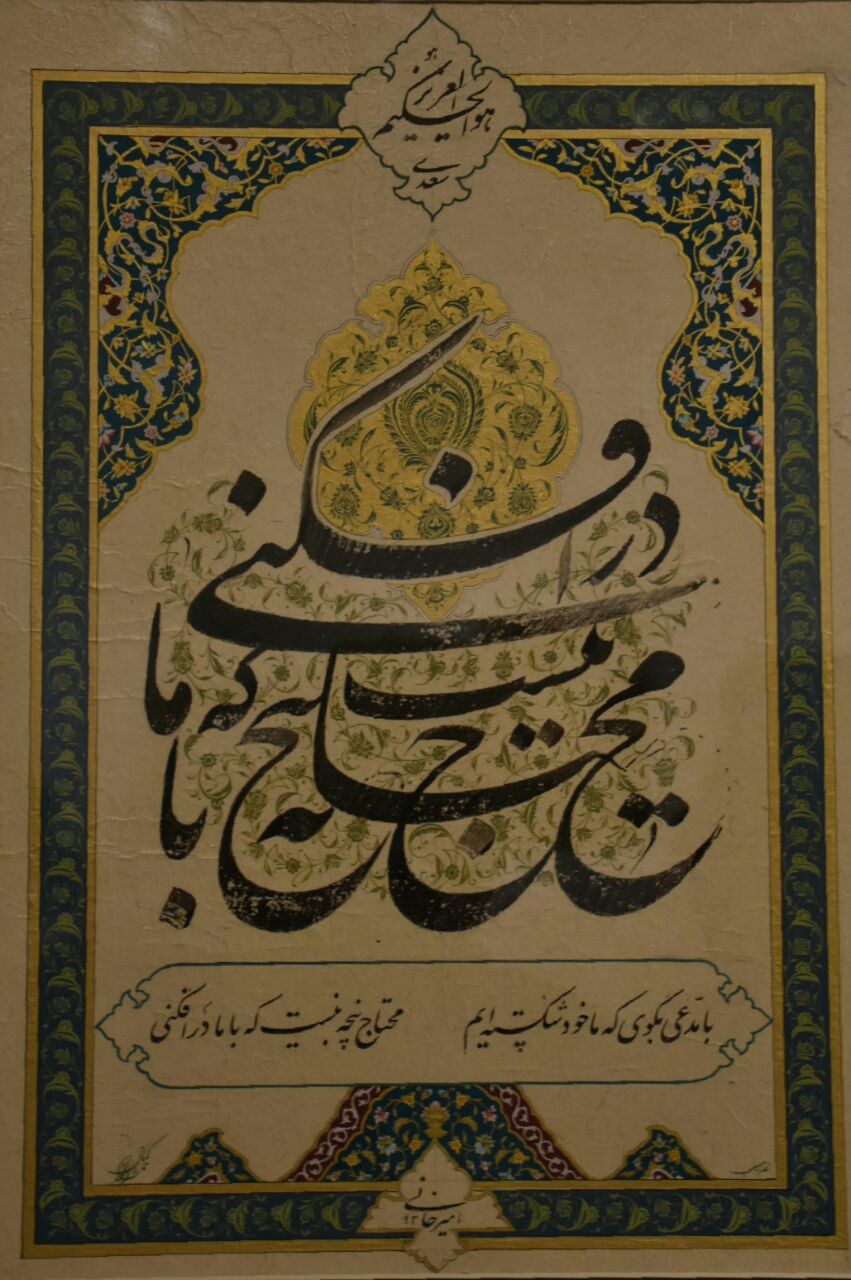 هو
هوالعزیز
الحکیم
سعدی
محتاج پنجه نیست که با ما درافکنی
با مدّعی بگوی که ما خود شکسته ایم
محتاج پنجه نیست که با ما درافکنی
امیرخانی
۹۳